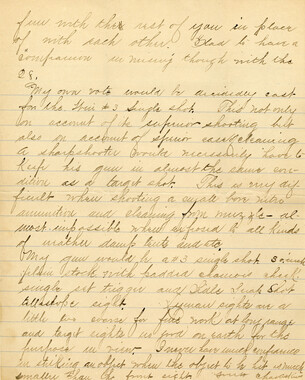 fun with the rest of you in place
of with each other. Glad to have a
companion in missing though with the
28.
My own vote would be decidedly cast
for the Win #3 Single shot. This not only
on account of its superior shooting but
also on account of cleaning.
A sharpshooter would necessarily have to
keep his gun in almost the same con-
dition as a target shot. This is very dif-
ficult when shooting a small bore nitro
ammunition and cleaning from muzzle - al-
most impossible when exposed to all kinds
of weather damp tents and etc.
My gun would be a #3 single shot 3
stock with padded cheek
single set trigger and side
telescope sight. Lyman sights are a
little too coarse for fine work at long range
and target sights no good on earth for the
purpose in view. I never have much confidence
in striking an object when the object to be hit is much
smaller than the front sight.